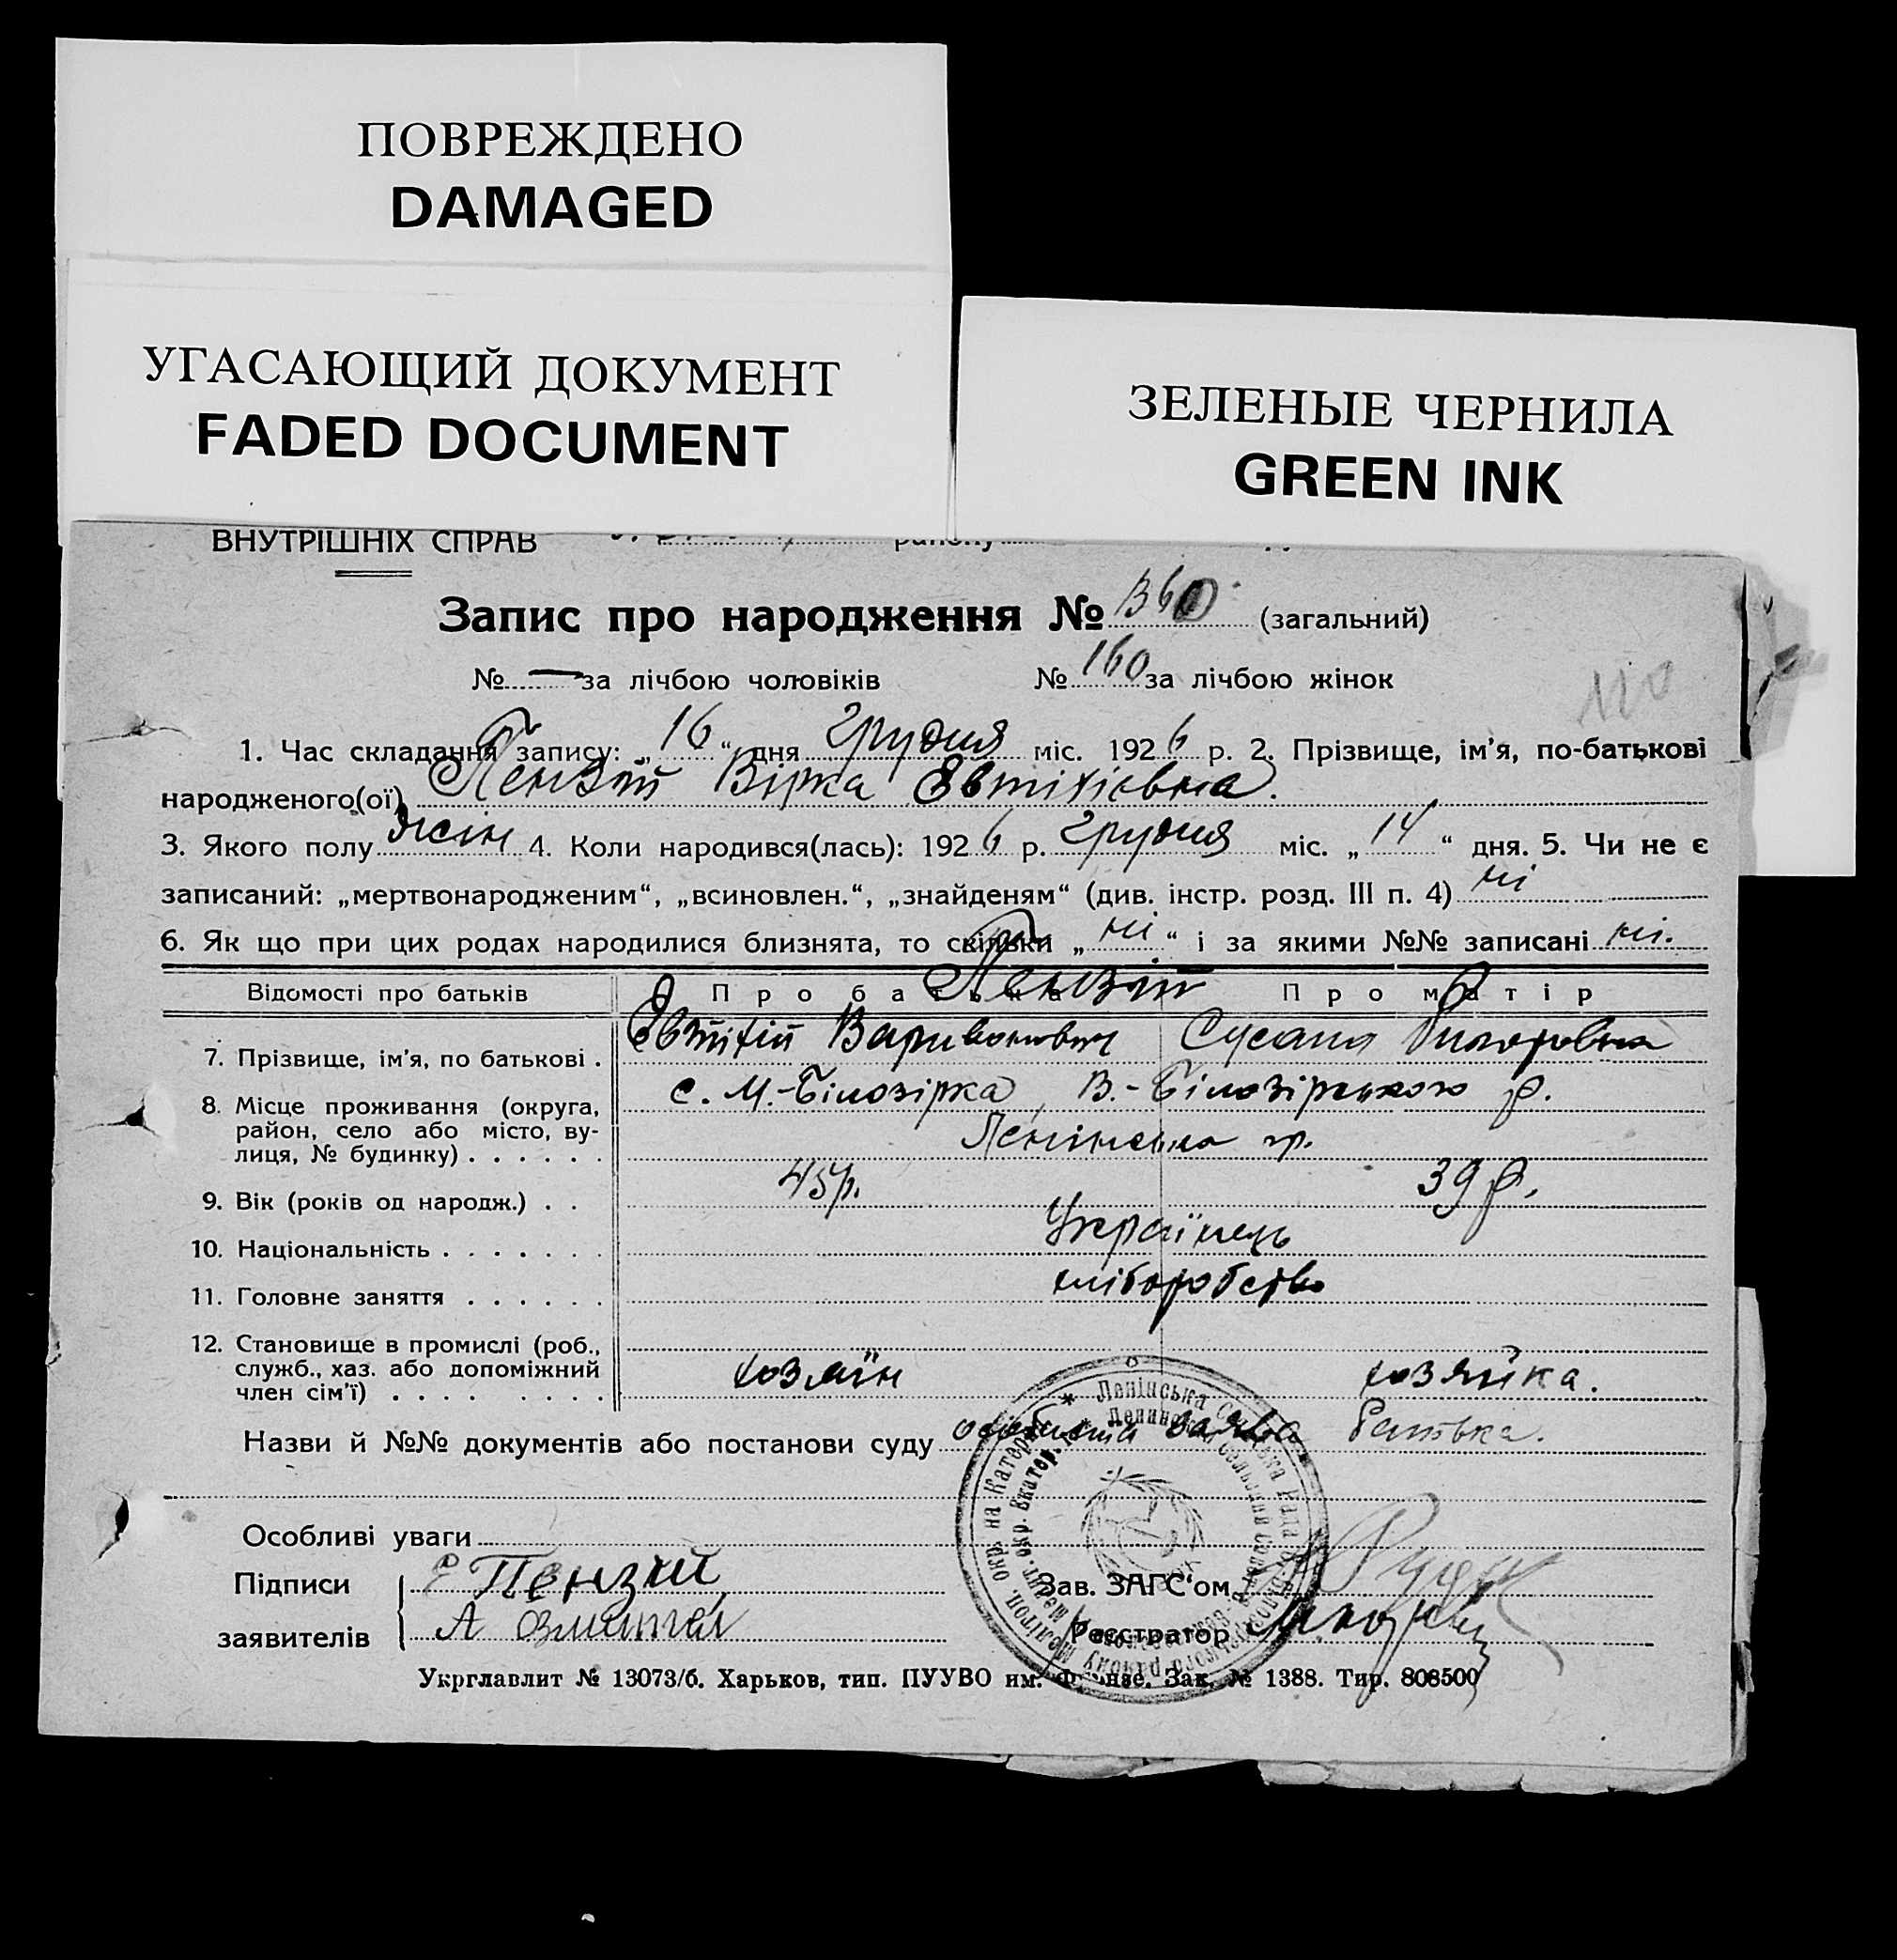 ПОВРЕЖДЕНО
DAMAGED
УГАСАЮЩИЙ ДОКУМЕНТ
FADED DOCUMENT
ЗЕЛЕНЫЕ ЧЕРНИЛА
GREEN INK
ВНУТРІШНІХ СПРАВ
Запис про народження № 360 (загальний)
№ — за лічбою чоловіків № 160 за лічбою жінок
110
1. Час складання запису: „16“ дня Грудня міс. 1926 р. 2. Прізвище, ім’я, по-батькові
народженого(ої) Пензій Вірка Євтіхієвна.
3. Якого полу жін 4. Коли народився(лась): 1926 р. Грудня міс. „14“ дня. 5. Чи не є
записаний: „мертвонародженим“, „всиновлен.“, „знайденям“ (див. інстр. розд. III п. 4) ні
6. Як що при цих родах народилися близнята, то скільки „ні“ і за якими №№ записані ні.
Відомості про батьків Про батька Про матір
Пензій
7. Прізвище, ім’я, по батькові . Євтихій Сусана
8. Місце проживання (округа, с. М.-Білозірка, В.-Білозірського р.
район, село або місто, ву-
лиця, № будинку) . . . . . . Ленінська
9. Вік (років од народж.) . . 45 р. 39 р.
10. Національність . . . . . . . Українець
11. Головне заняття . . . . . . хліборобство
12. Становище в промислі (роб.,
служб., хаз. або допоміжний
член сім’ї) . . . . . . . . . хозяїн хозяйка.
Назви й №№ документів або постанови суду особиста заява батька.
Особливі уваги
Підписи Е Пензий Зав. ЗАГС‘ом
заявителів А Реєстратор
Укрглавлит № 13073/б. Харьков, тип. ПУУВО им. Фрунзе. Зак. № 1388. Тир. 808500